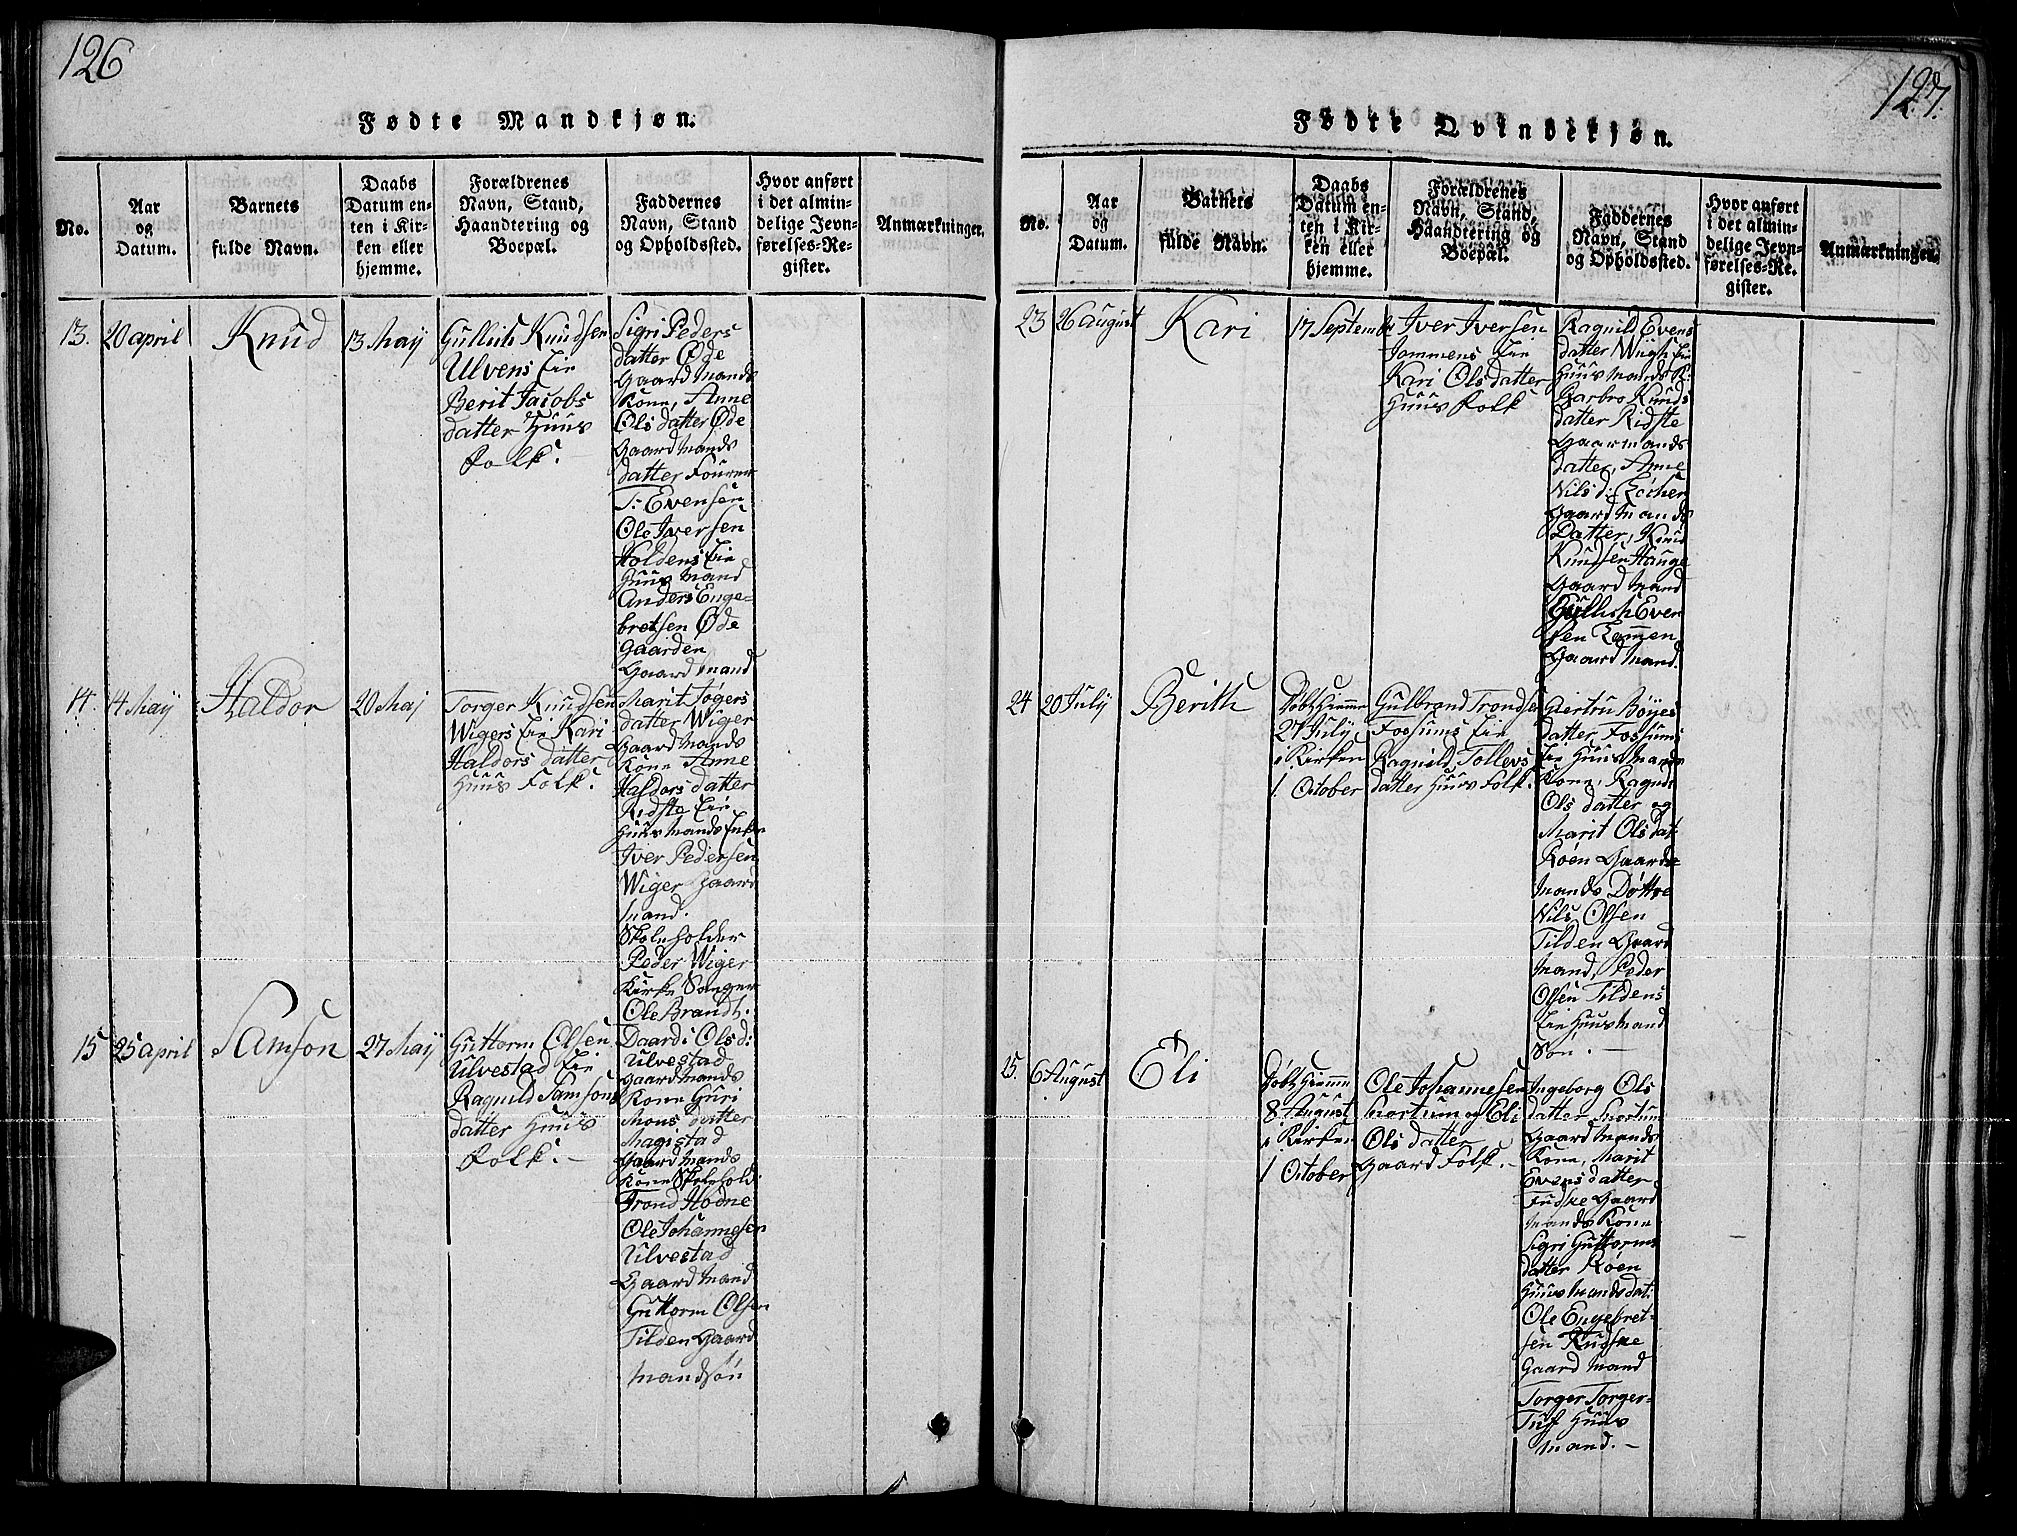 126
Fødte Mandkjøn.
No.
Aar
og
Datum.
Barnets
fulde Navn.
Daabs
Datum en-
ten i Kir-
ken eller
hjemme.
Forældrenes
Navn, Stand,
Haandtering og
Boepæl.
Faddernes
Navn, Stand
og Opholdssted.
Hvor anført
i det almin-
delige Jevn-
førelses-Re-
gister.
Anmærkninger.
13.
20 april
Knud
13 Maÿ
Gullich Knudsen
Ulvens Eie
Berit Jacobs
datter Huus
Folk.
Sigri Peders
datter Øde
Gaard Mands
Kone, Anne
Ols datter Øde
Gaard Mands
datter
T: Evensen
Ole Iversen
Holdens Eie
Huus Mand
Anders Enge-
bretsen Øde
Gaarden
Gaard Mand
14.
4 Maÿ
Haldor
20 Maj
Torger Knudsen
Wigers Eie Kari
Haldors datter
Huus Folk.
Marit
datter Wiger
Gaard Mands
Kone Anne
Haldors datter
Ridste Eie
Huus Mands Enke
Iver Pedersen
Wiger Gaard
Mand.
Skoleholder
Peder Wiger
Kirke Sanger
Ole Brandt.
15
25 april
Samson
27 Maÿ
Guttorm Olsen
Ulvestad Eie
Ragnild Samsons
datter Huus
Folk. -
Ols d:
Ulvestad
Gaard Mands
Kone Guri
Mons datter
Magistad
Gaard Mands
Kone Skolehold:
Trond Hodne
Ole Johannesen
Ulvestad
Gaard Mand
Guttorm Olsen
Tilden Gaard
Mandsøn
127.
Fødte Qvindekjøn.
No.
Aar
og
Datum.
Barnets
fulde Navn.
Daabs
Datum en-
ten i Kir-
ken eller
hjemme.
Forældrenes
Navn, Stand,
Haandtering og
Boepæl.
Faddernes
Navn, Stand
og Opholdssted.
Hvor anført
i det almin-
delige Jevn-
førelses-Re-
gister.
Anmærkninger.
23
26 August
Kari
17 Septembr
Iver Iversen
Eie
Kari Olsdatter
Huus Folk
Ragnild Evens
datter Eie
Huus Mands K:
Barbro Knuds
datter Ridste
Gaarmands
datter, Anne
Nils d:
Gaard Mands
Datter, Knud
Knudsen Hauge
Gaard Mand
Gullich Even
sen
Gaard Mand.
24
20 July
Berith
Døbt Hiemme
27 Julÿ
i Kirken
1 October
Gulbrand Trondsen
Fossums Eie
Ragnild Tollevs
datter Huus Folk.
Giertru Bøyes
datter Fossums
Eie Huus Mands
Kone, Ragnd:
Ols datter og
Marit Ols dat:
Røen Gaard
Mands Døttre
Nils Olsen
Tilden Gaard
Mand, Peder
Olsen Tildens
Eie Huusmand
Søn. -
25.
6 August
Eli
Døbt Hiemme
8 August
i Kirken
1 October
Ole Johannesen
og Eli
Ols datter
Gaard Folk. -
Ingeborg Ols
datter
Gaard Mands
Kone, Marit
Evens datter
Gaard
Mands Kone
Sigri Guttorms
datter Røen
Huus Mands dat:
Ole Engebret-
sen
Gaard Mand
Torger Torger-
Huus
Mand. -